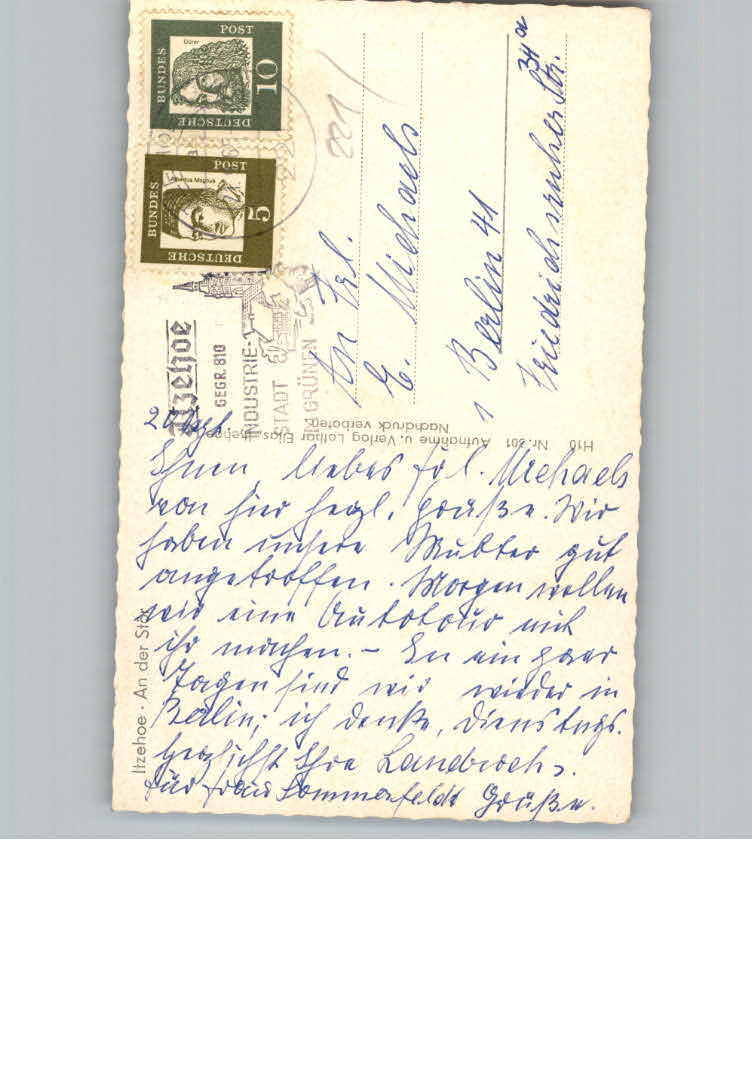 DEUTSCHE
BUNDES
POST
10
Dürer
DEUTSCHE
BUNDES
POST
5
Albertus Magnus
221
Itzehoe
GEGR. 810
INDUSTRIE-
STADT
IM GRÜNEN
An Frl.
E. Michaels
1 Berlin 41
Friedrichsruher Str. 34a
H10 Nr. 301 Aufnahme u. Verlag Lothar Elias, Itzehoe
Nachdruck verboten
Itzehoe · An der Stör
Ihnen, liebes Frl. Michaels
von hier herzl. Grüße. Wir
haben unsere Mutter gut
angetroffen. Morgen wollen
wir eine Autotour mit
ihr machen. – In ein paar
Tagen sind wir wieder in
Berlin; ich denke, Dienstags.
Herzlichst Ihre
Für Frau Sommerfeldt Grüße.